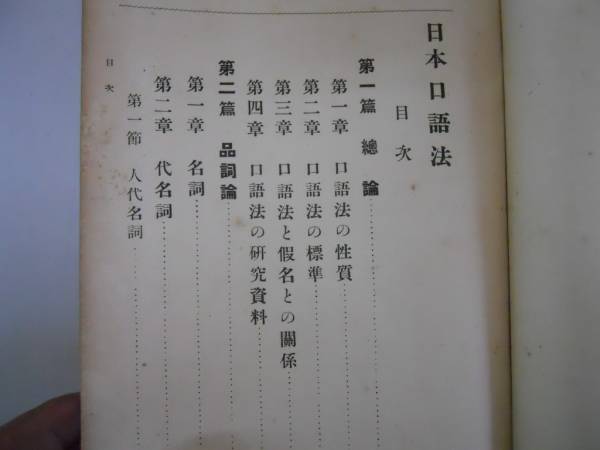 日本口語法
目次
第一篇 總論
第一章 口語法の性質
第二章 口語法の標準
第三章 口語法と假名との關係
第四章 口語法の研究資料
第二篇 品詞論
第一章 名詞
第二章 代名詞
第一節 人代名詞
目次